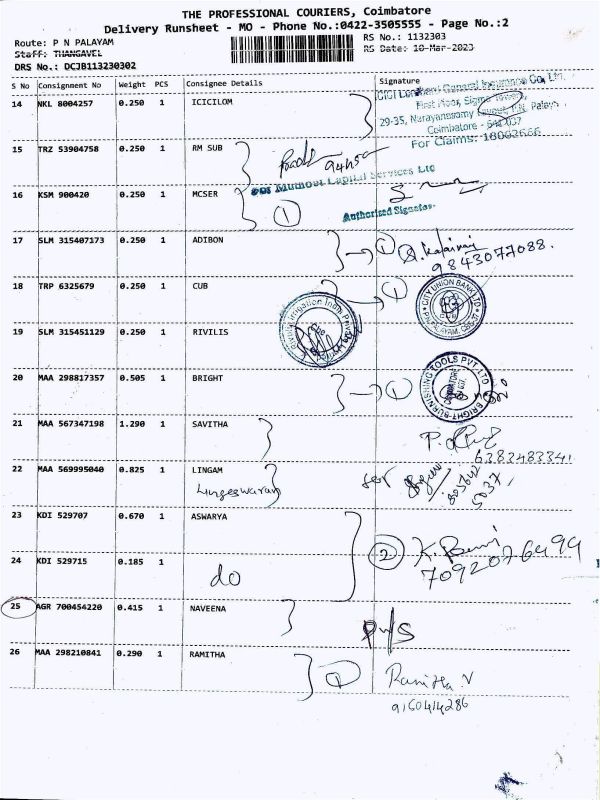 THE PROFESSIONAL COURIERS, Coimbatore
Delivery Runsheet - MO - Phone No.:0422-3505555 - Page No.:2
Route: P N PALAYAM
RS No.: 1132303
Staff: THANGAVEL
RS Date: 10-Mar-2023
DRS No.: DCJB113230302
S No Consignment No Weight PCS Consignee Details Signature
14 NKL 8004257 0.250 1 ICICILOM
General Insurance Co. Ltd.
First Floor,
29-35, Narayanasamy Layout, P.N. Palayam
Coimbatore - 641 037
For Claims: 18002666
15 TRZ 53904758 0.250 1 RM SUB
Capital Services Ltd
16 KSM 900420 0.250 1 MCSER
1
Authorised Signatory
17 SLM 315407173 0.250 1 ADIBON
1
9843077088.
18 TRP 6325679 0.250 1 CUB
1
CITY UNION BANK LTD
19 SLM 315451129 0.250 1 RIVILIS
20 MAA 298817357 0.505 1 BRIGHT
1
BRIGHT BURNISHING TOOLS PVT LTD
21 MAA 567347198 1.290 1 SAVITHA
6383483341
22 MAA 569995040 0.825 1 LINGAM
Lingeswaran
23 KDI 529707 0.670 1 ASWARYA
2
7092076494
24 KDI 529715 0.185 1
do
25 AGR 700454220 0.415 1 NAVEENA
26 MAA 298210841 0.290 1 RAMITHA
1
Ramitha.V
9160414286